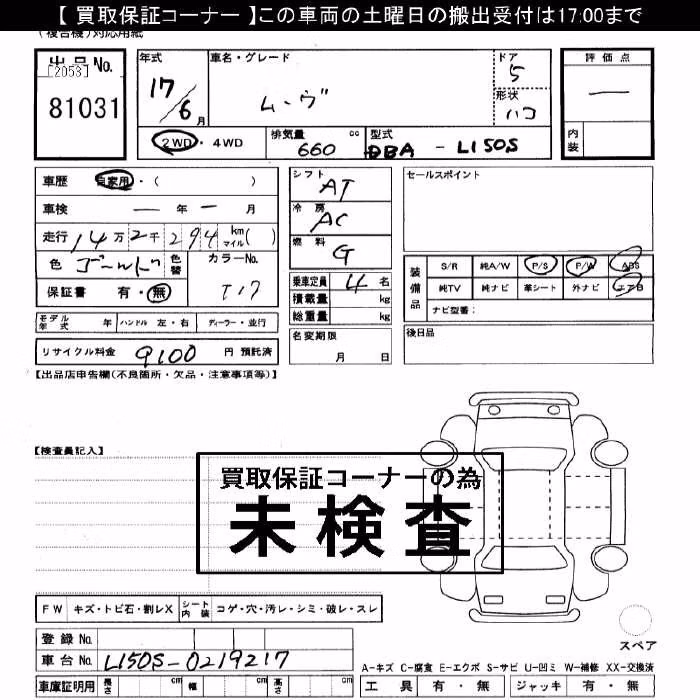 【 買取保証コーナー 】この車両の土曜日の搬出受付は17:00まで
(複合機)対応用紙
出品 No.
[2053]
81031
年式
17/6月
車名・グレード
ムーヴ
ドア
5
形状
ハコ
評価点
―
内装
2WD・4WD
排気量 660 cc
型式 DBA - L150S
車歴 自家用・( )
車検 ― 年 ― 月
走行 14万2千294 km マイル( )
色 ゴールド 色替
カラーNo. T17
保証書 有・無
シフト AT
冷房 AC
燃料 G
乗車定員 4 名
積載量 kg
総重量 kg
セールスポイント
装備品
S/R 純A/W P/S P/W ABS
純TV 純ナビ 革シート 外ナビ エアB
ナビ型番:
モデル年式 年 ハンドル 左・右 ディーラー・並行
名変期限
月 日
後日品
リサイクル料金 9100 円 預託済
【出品店申告欄(不良箇所・欠品・注意事項等)】
【検査員記入】
買取保証コーナーの為
未検査
FW キズ・トビ石・割レX シート内装 コゲ・穴・汚レ・シミ・破レ・スレ
登録 No.
車台 No. L150S-0219217
車庫証明用 長さ cm 幅 cm 高さ cm
スペア
A-キズ C-腐食 E-エクボ S-サビ U-凹ミ W-補修 XX-交換済
工具 有・無 ジャッキ 有・無